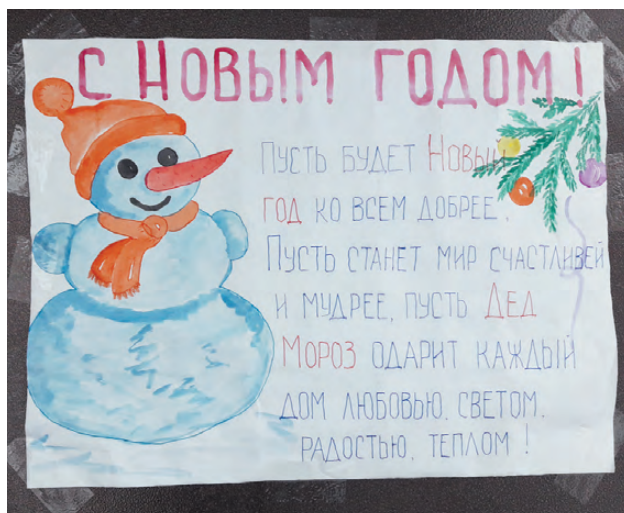 С НОВЫМ ГОДОМ!
ПУСТЬ БУДЕТ НОВЫЙ
ГОД КО ВСЕМ ДОБРЕЕ,
ПУСТЬ СТАНЕТ МИР СЧАСТЛИВЕЙ
И МУДРЕЕ, ПУСТЬ ДЕД
МОРОЗ ОДАРИТ КАЖДЫЙ
ДОМ ЛЮБОВЬЮ, СВЕТОМ,
РАДОСТЬЮ, ТЕПЛОМ!